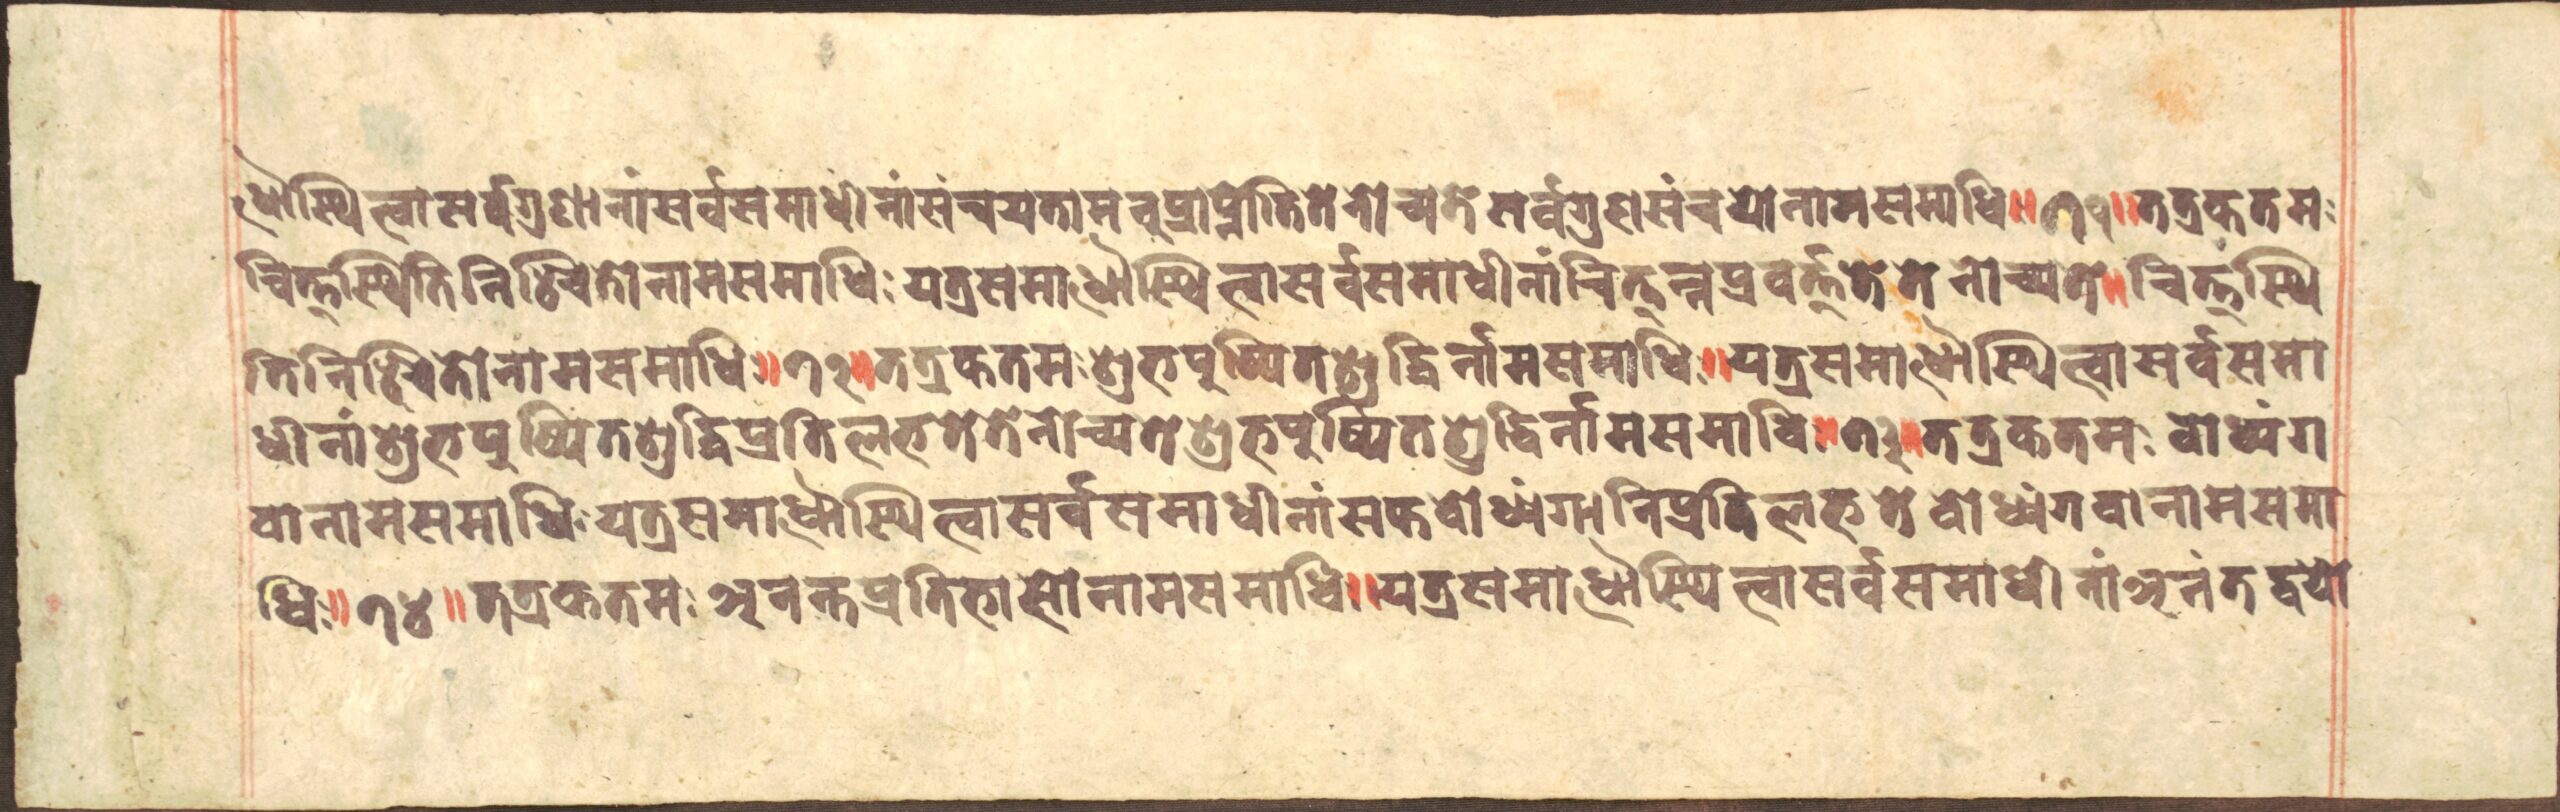 धौस्थित्वासर्वगुणानांसर्वसमाधीनांसंचयतामनुप्राप्नोतितेनोच्यते सर्वगुणसंचयोनामसमाधिः॥७१॥तत्रकतमः
चित्तस्थितिनिश्चितोनामसमाधिः यत्रसमाधौस्थित्वासर्वसमाधीनांचित्तन्नप्रवर्त्तते तेनोच्यते॥चित्तस्थि
तिनिश्चितोनामसमाधिः॥७२॥तत्रकतमःशुभपुष्पितशुद्धिर्नामसमाधिः॥यत्रसमाधौस्थित्वासर्वसमा
धीनांशुभपुष्पितशुद्धिप्रतिलभतेतेनोच्यतेशुभपुष्पितशुद्धिर्नामसमाधिः॥७३॥तत्रकतमः बोध्यंग
वानामसमाधिः यत्रसमाधौस्थित्वासर्वसमाधीनांसप्तबोध्यंगानिप्रतिलभते बोध्यंगवानामसमा
धिः॥७४॥तत्रकतमः अनन्तप्रतिभासोनामसमाधिः॥यत्रसमाधौस्थित्वासर्वसमाधीनांअनंतद्वयो